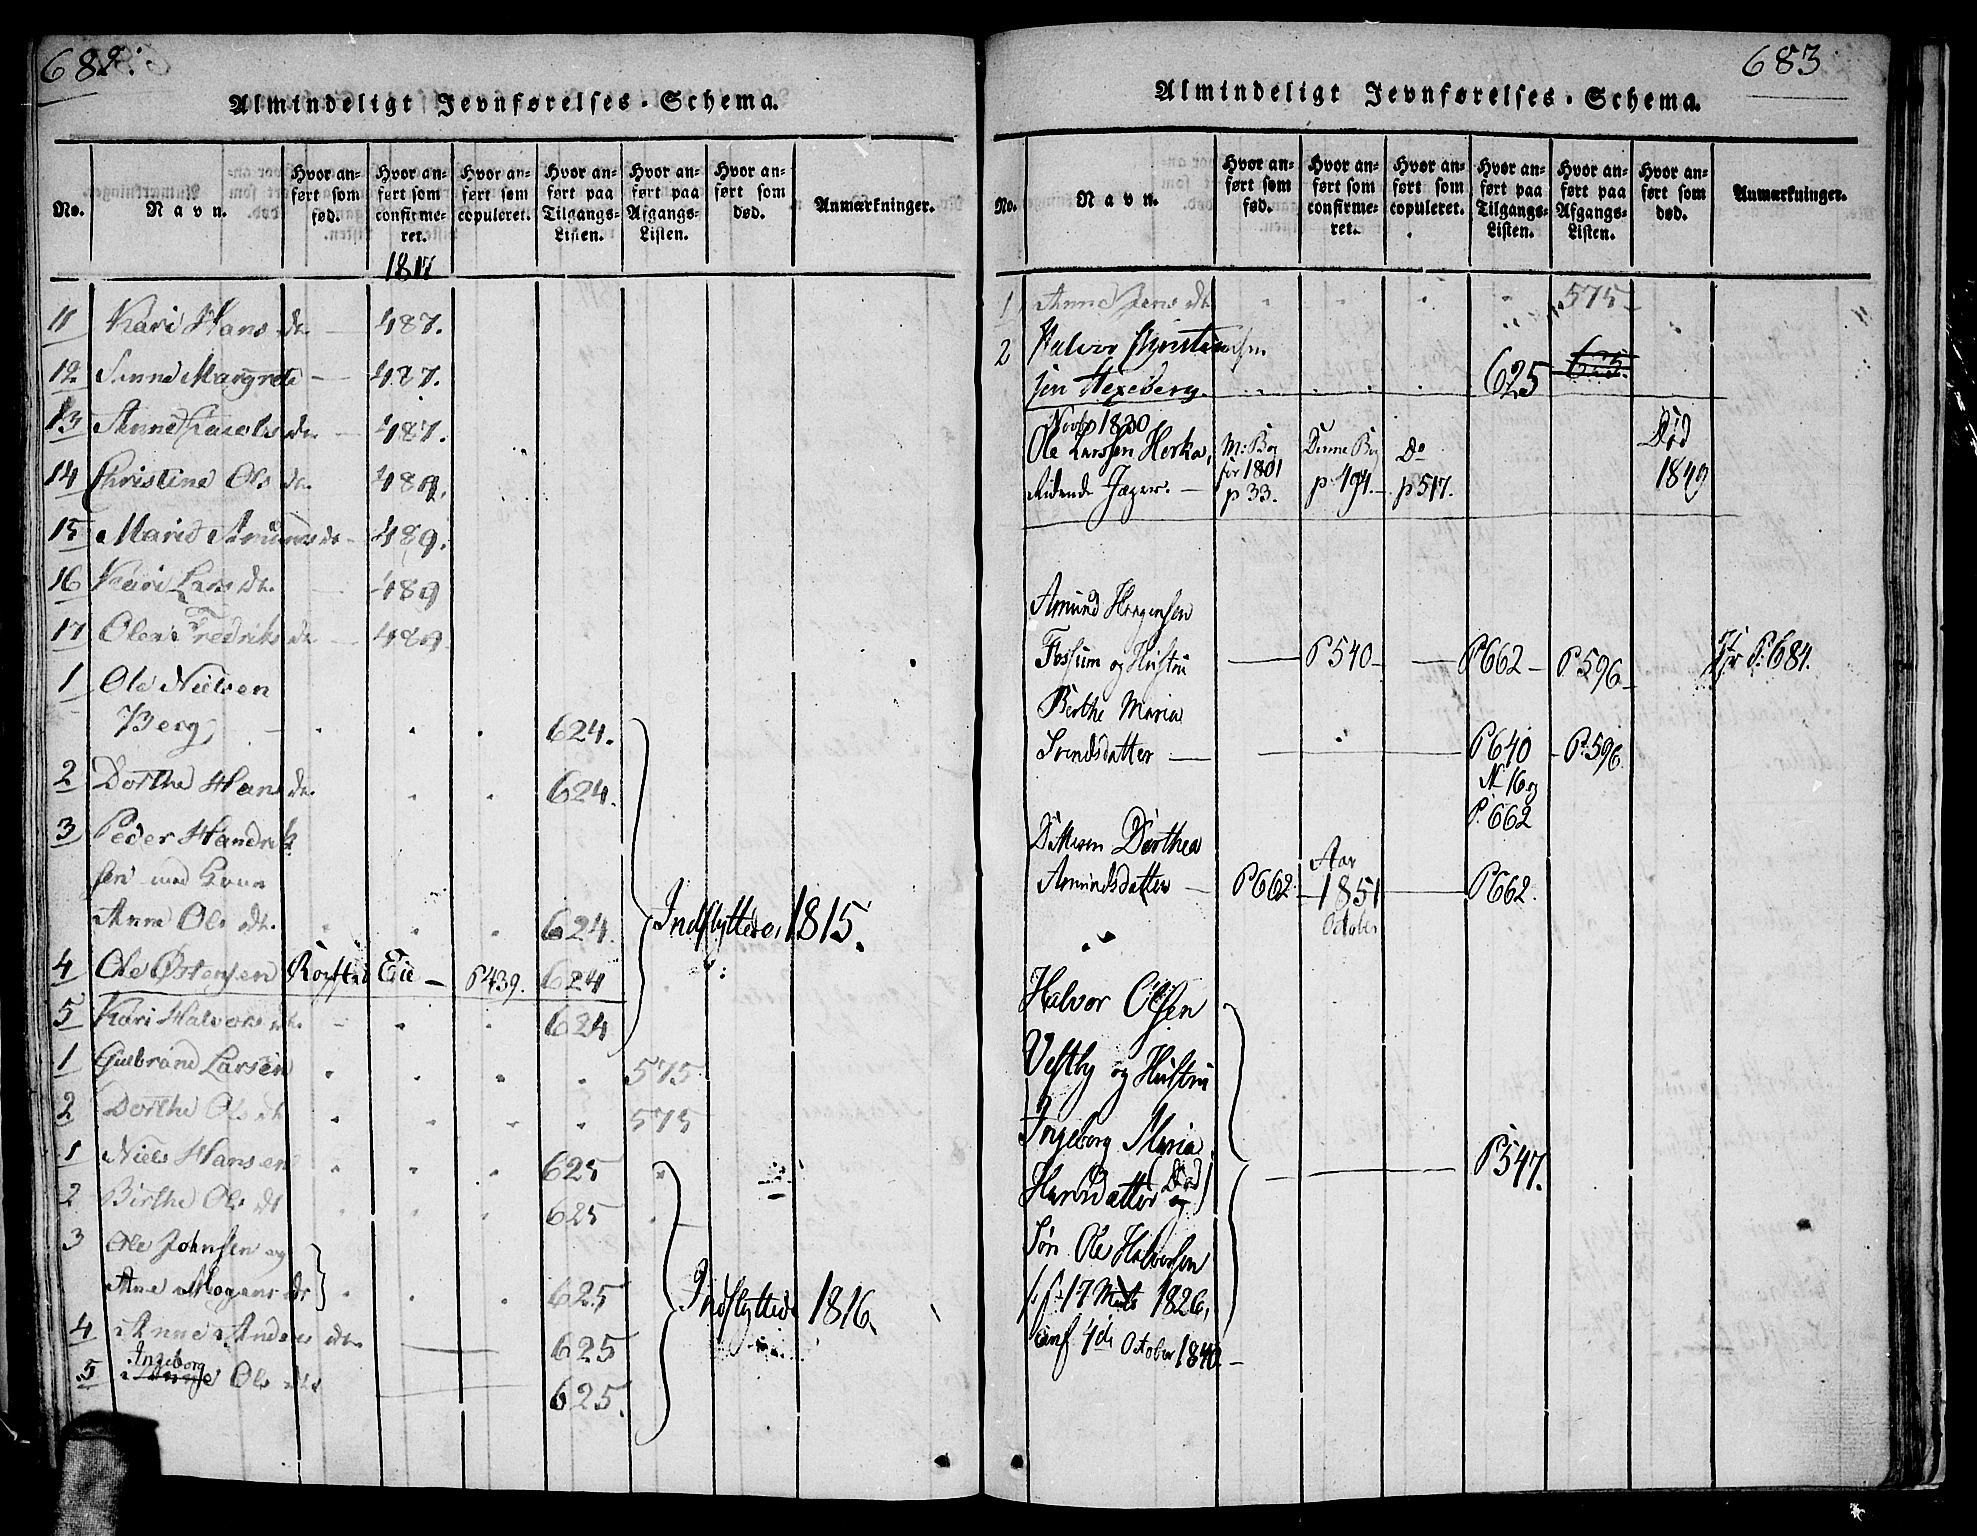 682.
Almindeligt Jevnførelses-Schema.
No.
Navn.
Hvor anført som fød.
Hvor anført som confirmeret.
Hvor anført som copuleret.
Hvor anført paa Tilgangs-Listen.
Hvor anført paa Afgangs-Listen.
Hvor anført som død.
Anmærkninger.
1817
11 Kari Hans dr. 487.
12. Margrete 487.
13 Anne dr. 487.
14 Christine Ols dr. 489.
15 Marie dr 489.
16 Kari Lars dr. 489
17 Fredriks dr 489
1 Ole Nielsen
Berg, 624.
2 Dorthe Hans dr. 624.
3 Peder
sen med
Anne Ols dr. 624.
Indflyttede 1815.
4 Ole Østensen Eie P 439. 624
5 Kari Halvors dr. 624
1 Gulbrand Larsen 575
2 Dorthe Ols dr 575
1 Niels Hansen 625
2 Birthe Ols dr 625
3 Ole Johnsen og
Ane Mogens dr 625
Indflyttede 1816.
4 Anne Anders dr. 625
Ingeborg
5 Ols dr 625.
683
Almindeligt Jevnførelses-Schema.
No.
Navn.
Hvor anført som fød.
Hvor anført som confirmeret.
Hvor anført som copuleret.
Hvor anført paa Tilgangs-Listen.
Hvor anført paa Afgangs-Listen.
Hvor anført som død.
Anmærkninger.
1 Anne Jens dr 575
2 Halvor
625 625.
1830
Ole Larssen M: Bog Denne Bog Do Død
for 1801 1849
Ridende Jæger. p 33. p 494. p 517.
Amund Haagensen
Fossum og Hustru P 540 P 662 P 596 P: 684.
Berthe Maria
Svendsdatter P 640 P. 596
N 16 og
P. 662
Datteren Dorthea
Amundsdatter P 662. Aar 1851 P 662.
October
Halvor Olsen
Vestby og Hustru
Ingeborg Maria
Hansdatter (Død) P 547.
og
Søn Ole Halvorsen
f. 17 Marts 1826,
conf 4de October 1840.